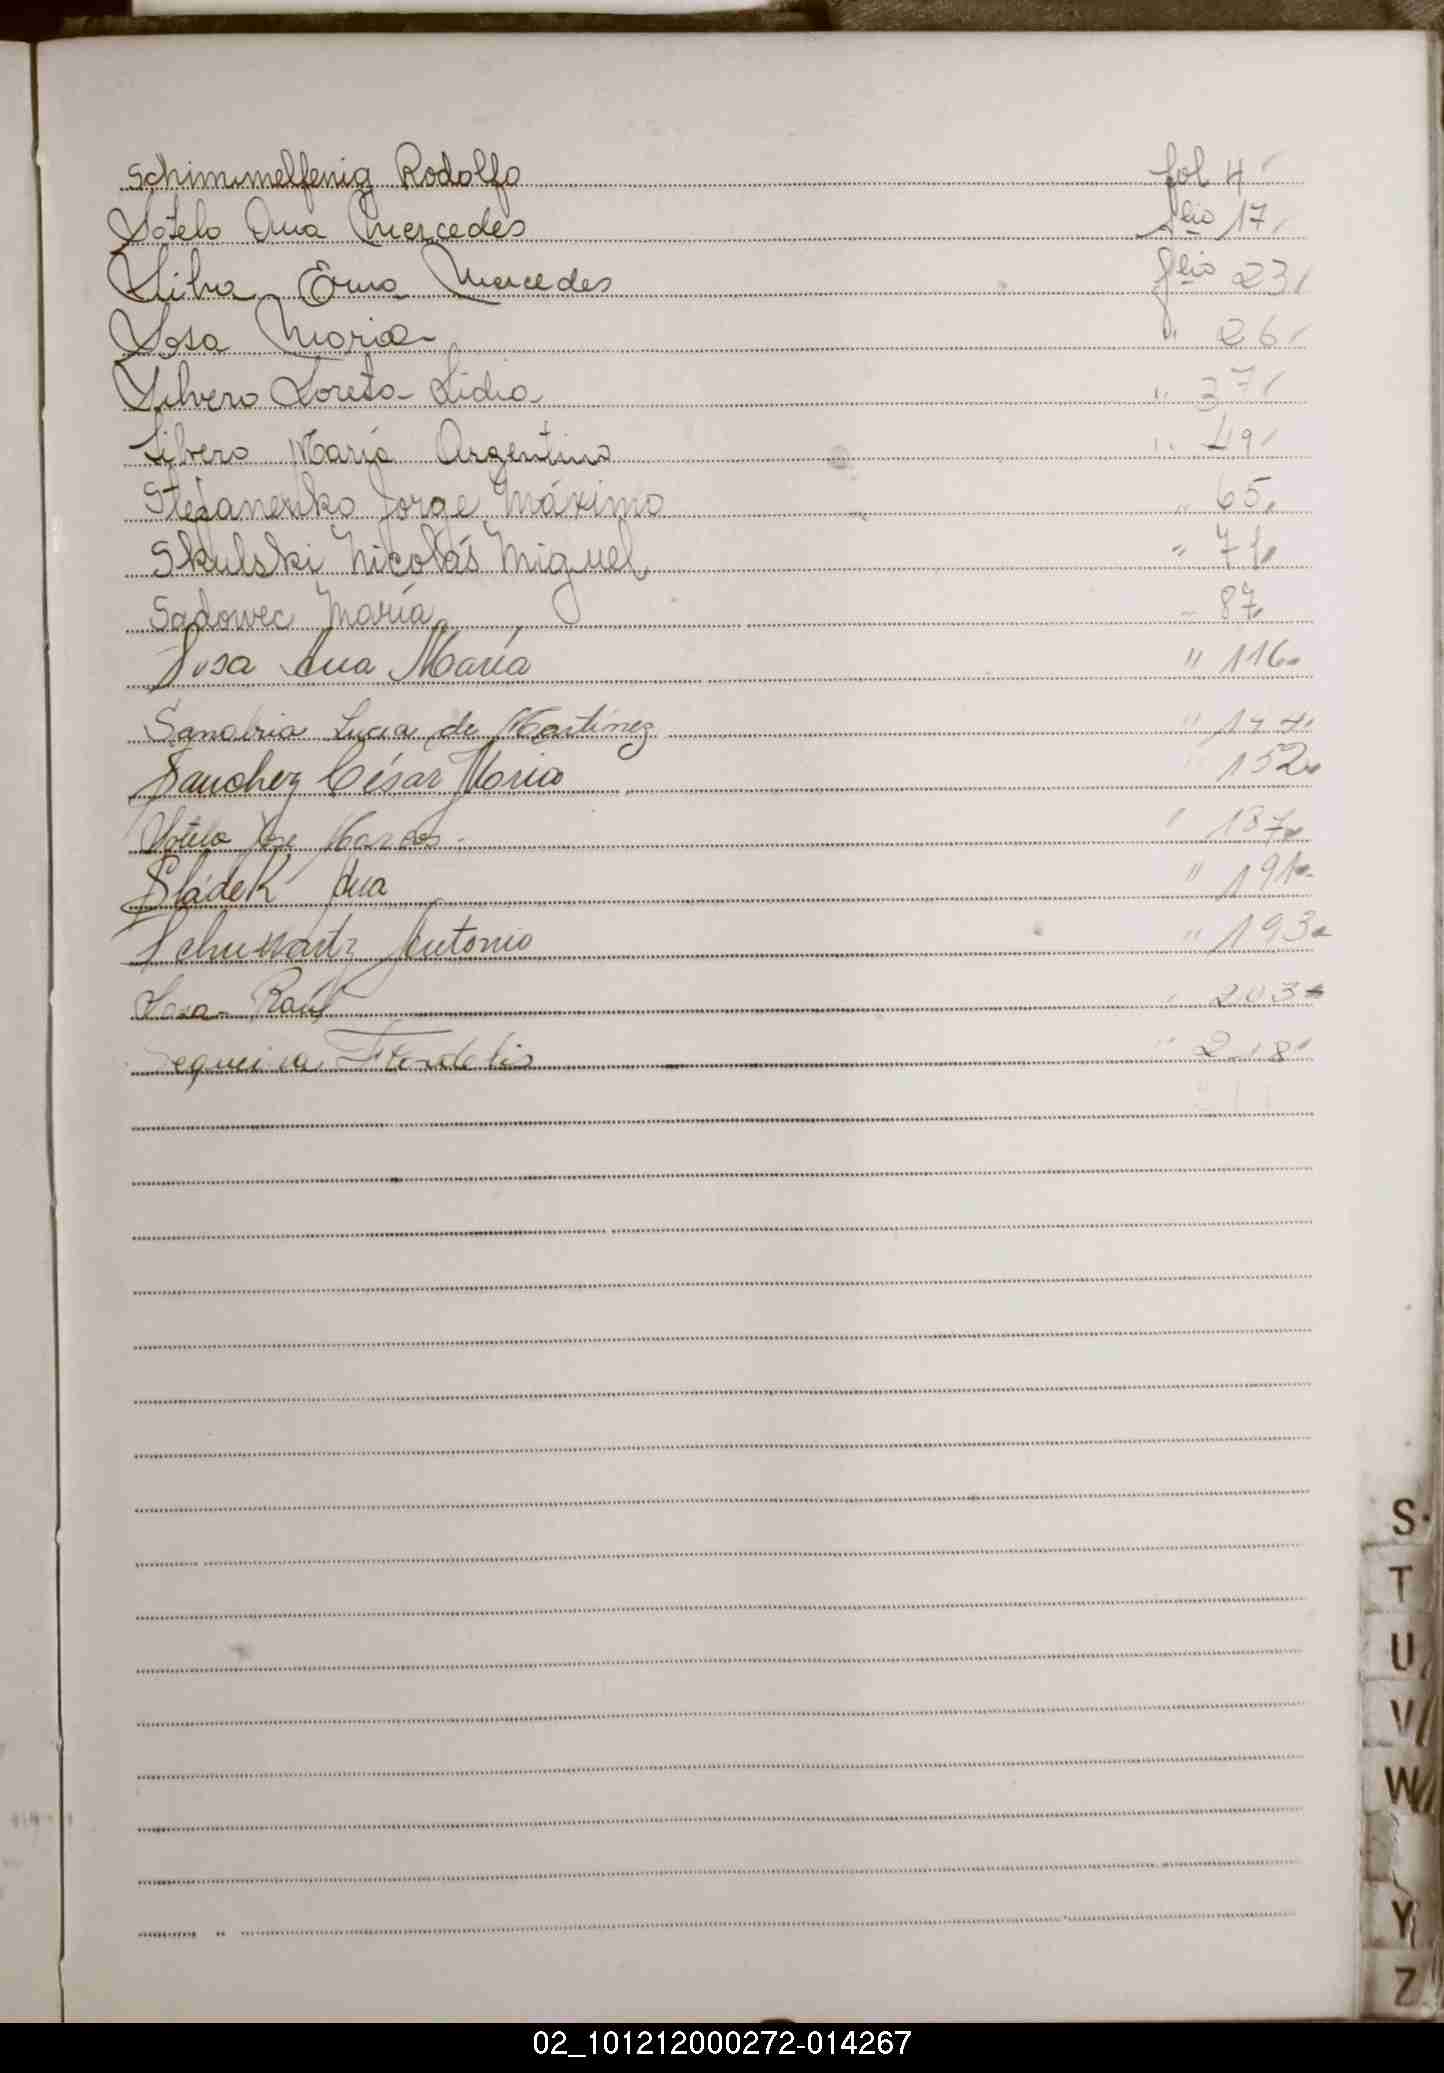 Schimmelfenig Rodolfo fol 4
Sotelo Ana Mercedes flio 17
Silva Erma Mercedes flio 23
Sosa Maria " 26
Silvero Loreto Lidio " 37
Silvero María Argentina " 49
Stefanenko Jorge Máximo " 65
Skulski Nicolás Miguel " 71
Sadowec María " 87
Sosa Ana María " 116
Sanabria Lucia de Martínez "
Sanchez César Maria 152
Sotelo José Marcos " 187
Sládek Ana " 191
Schuwartz Antonio " 193
Sosa Raúl " 203
Sequeira Flordelis " 218
S
T
U
V
W
Y
Z
02_101212000272-014267